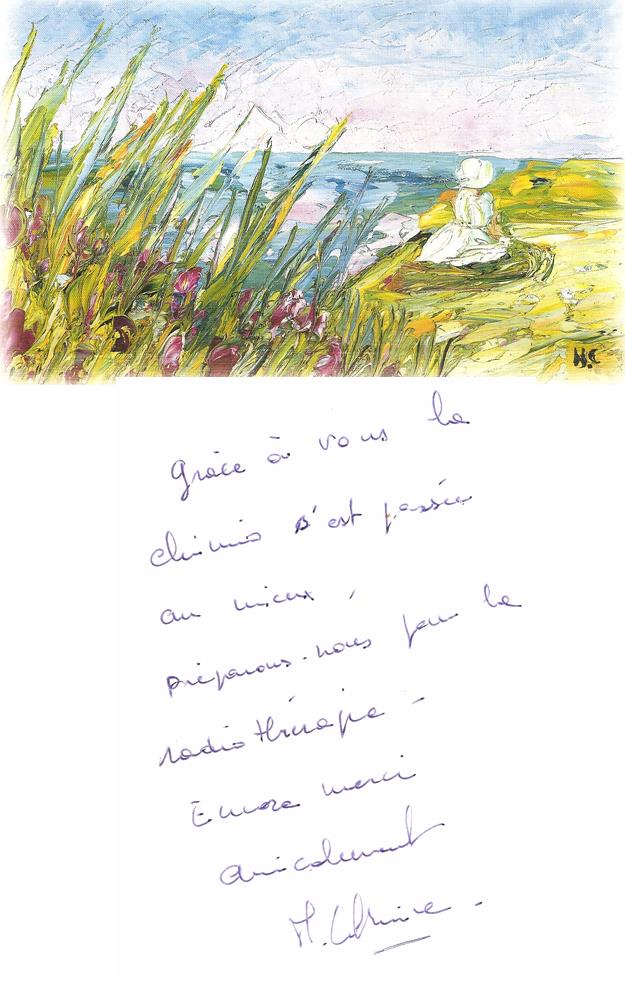 H.C
Grâce à vous la
chimio s'est passée
au mieux,
préparons-nous pour la
radiothérapie -
Encore merci
amicalement